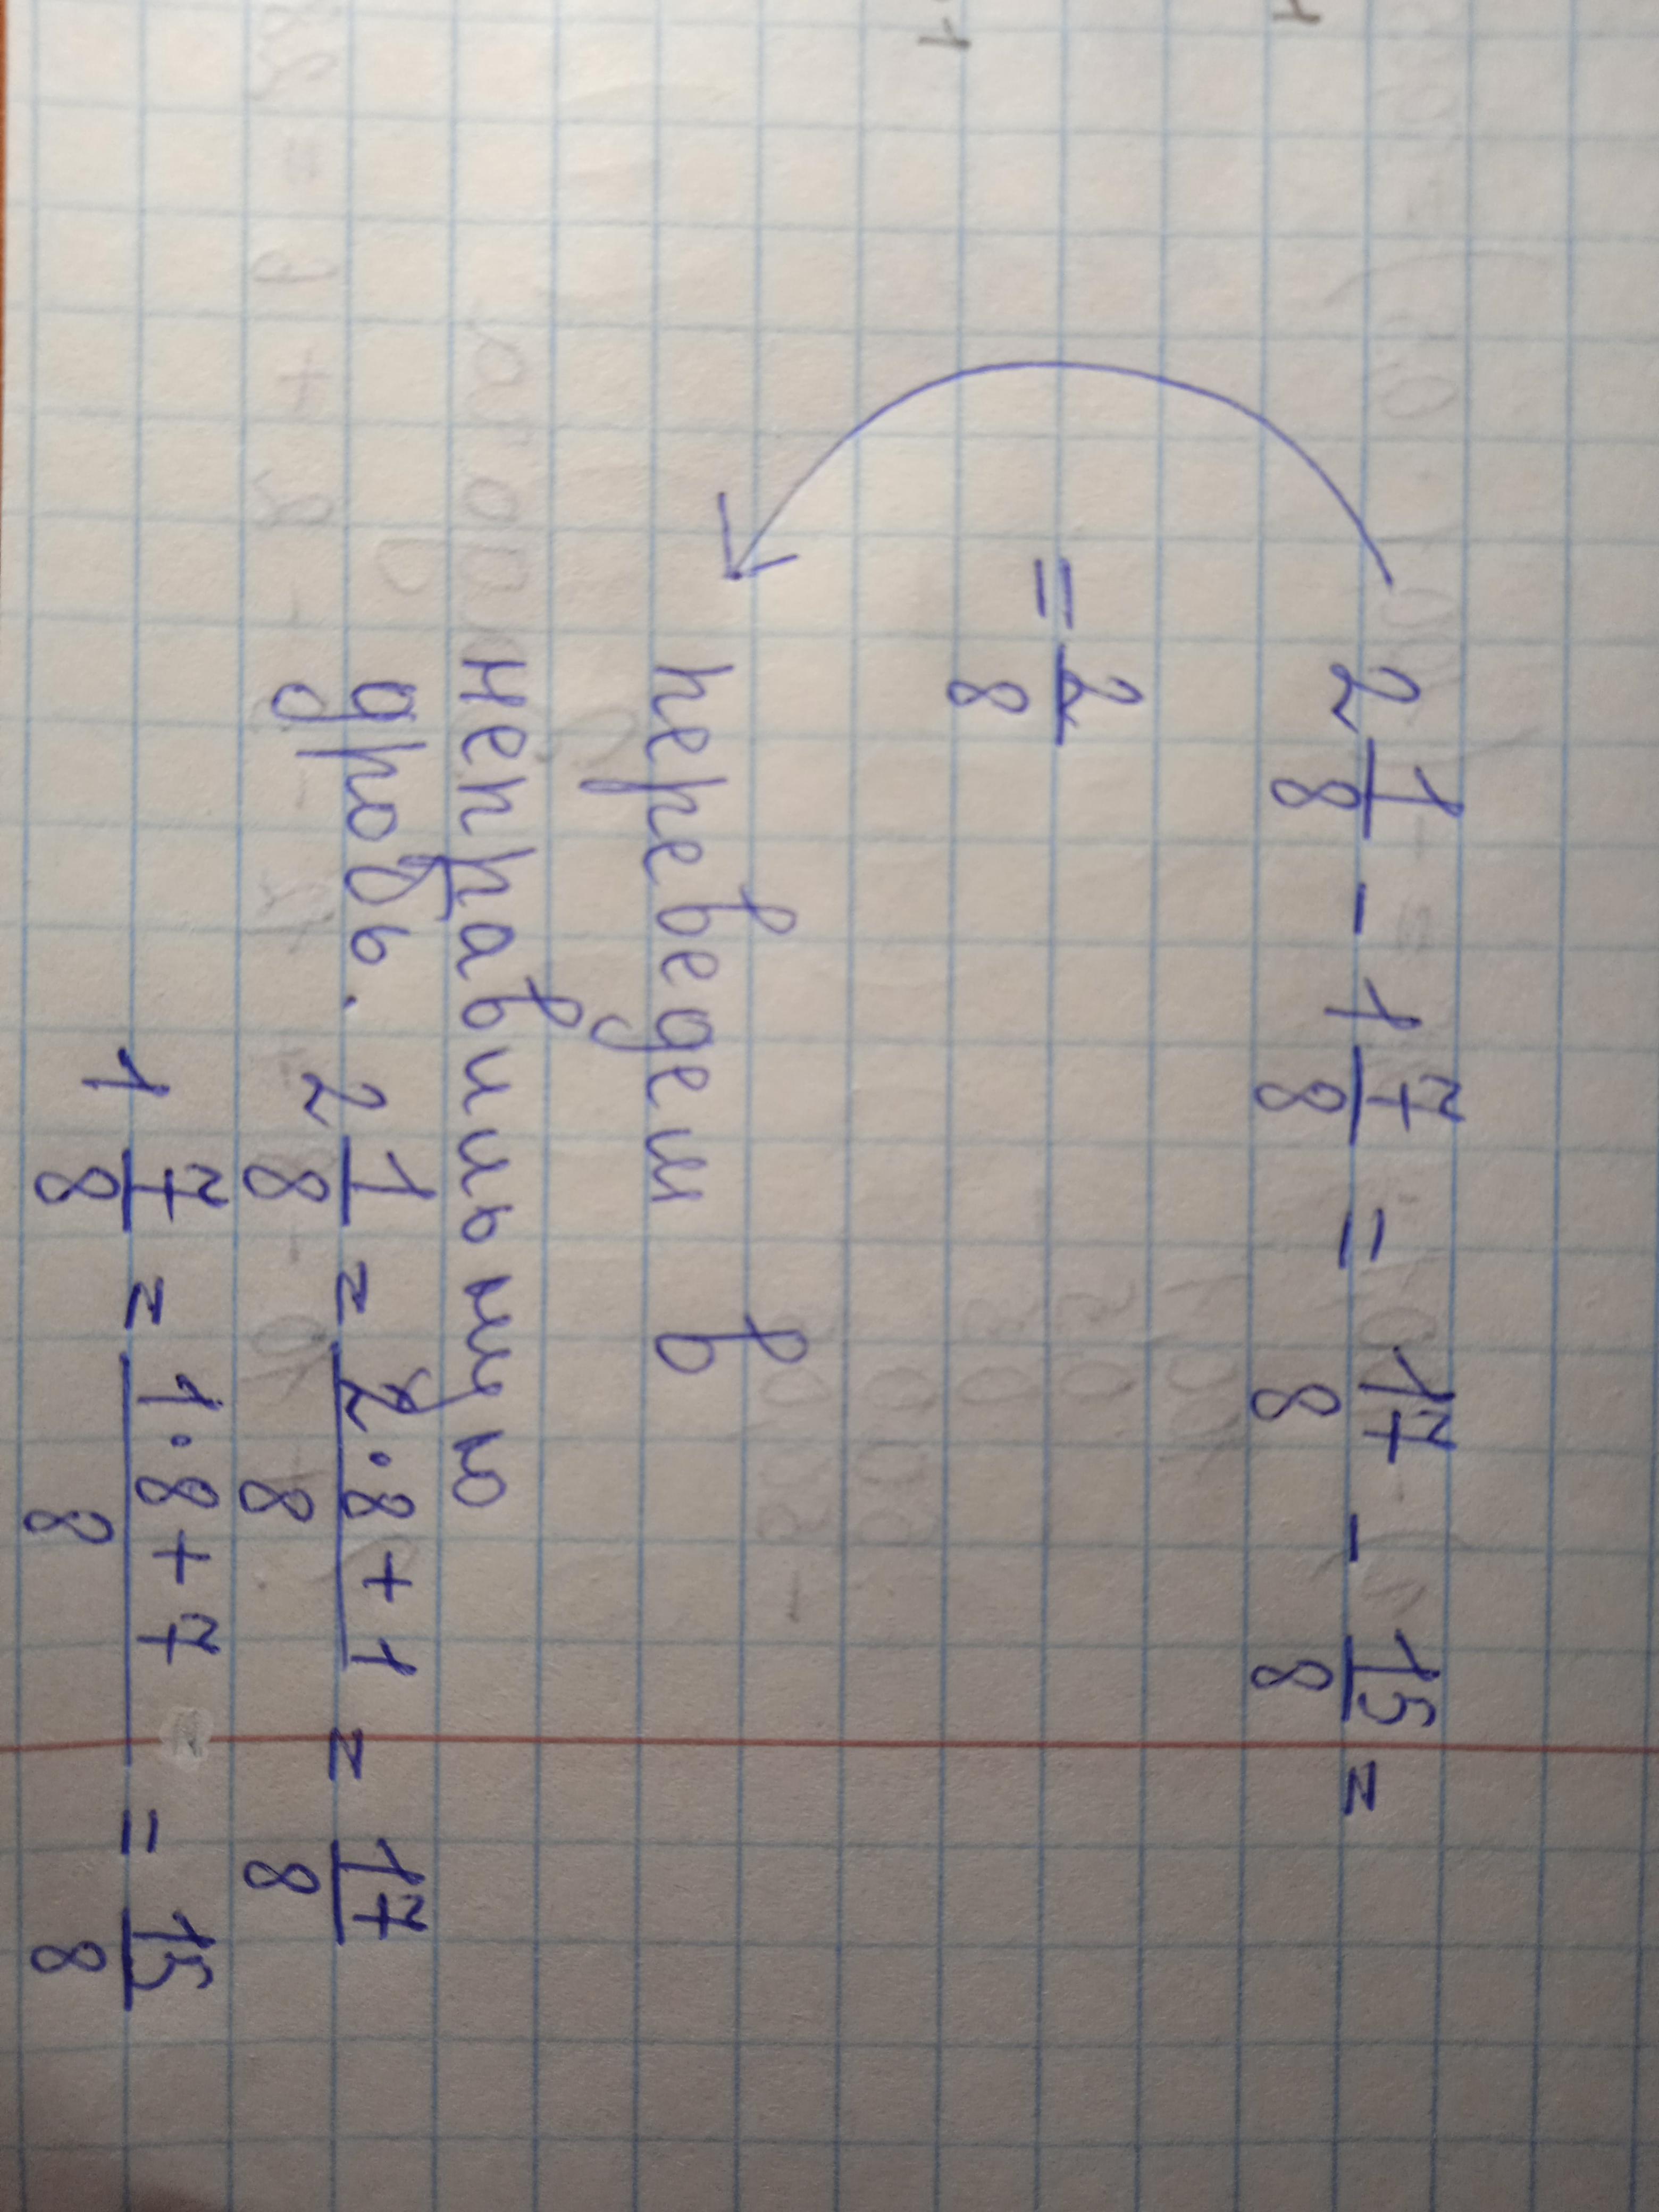 2 1/8 - 1 7/8 = 17/8 - 15/8 =
= 2/8
переведем в
неправильную
дробь. 2 1/8 = (2·8+1)/8 = 17/8
1 7/8 = (1·8+7)/8 = 15/8